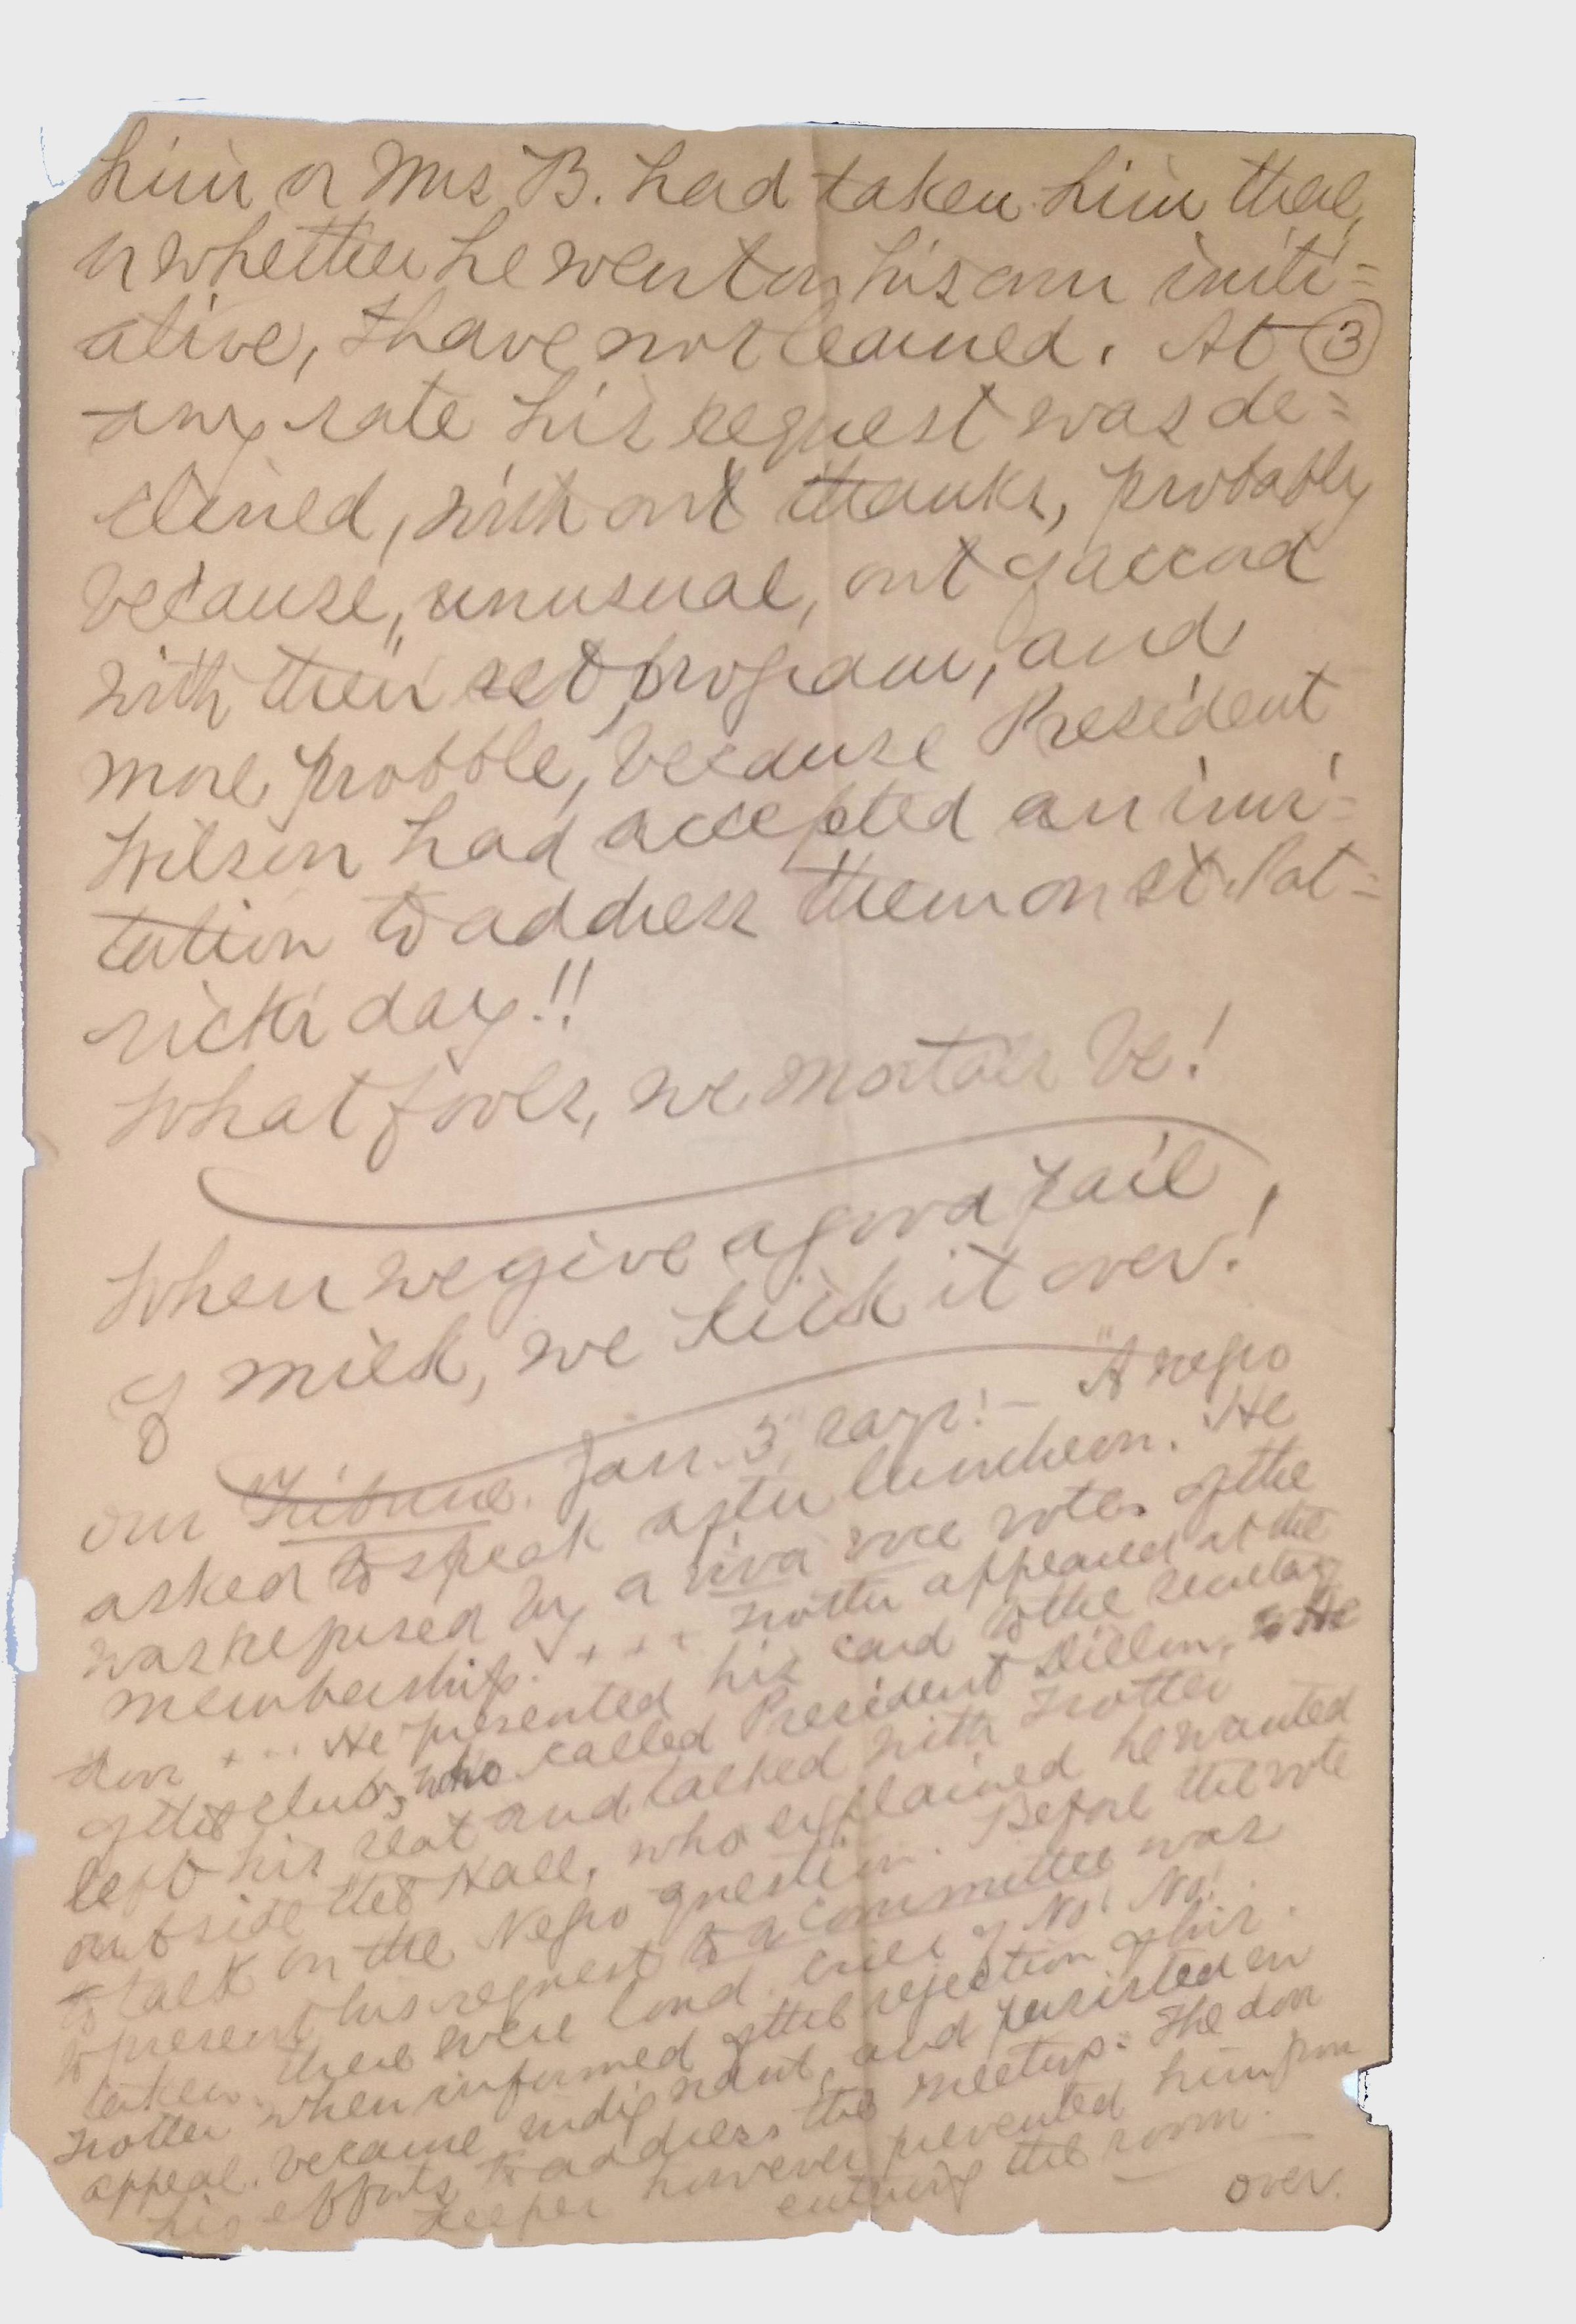 him or Mrs B. had taken him there,
or whether he went on his own initi=
ative, I have not learned. At ③
any rate his request was de=
clined, with out thanks, probably
because, unusual, out of accord
with their set program, and
more probble, because President
Wilson had accepted an invi=
tation to address them on St. Pat=
rick's day!!
What fools, we mortals be!
When we give a good pail,
of milk, we kick it over!
our Tribune. Jan. 5, says:— "A negro
asked to speak after luncheon. He
was refused by a viva voce vote. of the
membership. + + + Trotter appeared at the
door + ... He presented his card to the secretary
of the club, who called President Dillon, He
left his seat and talked with Trotter
outside the Hall, who explained he wanted
to talk on the Negro question. Before the vote
to present his request to a committee was
taken. there were loud cries of No! No!.
Trotter when informed of the rejection of his
appeal. became indignant, and persisted in
his efforts to address the meeting. The door
keeper however prevented him from
entering the room.
over.